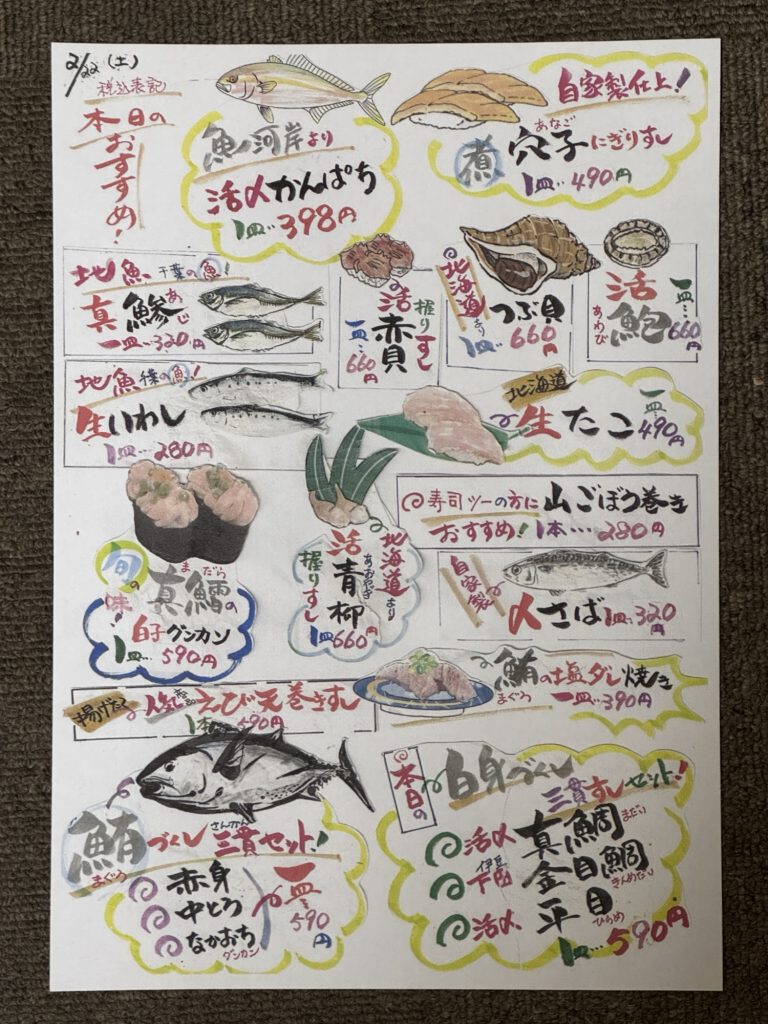 2/22(土)
税込表記
本日の
おすすめ!
魚ノ河岸より
活〆かんぱち
1皿…398円
自家製仕上!
煮穴子にぎりすし
あなご
1皿…490円
地魚 千葉の魚!
真鰺
あじ
一皿…320円
活赤貝
握りすし
一皿…660円
北海道より
つぶ貝
1皿…660円
活鮑
あわび
一皿…660円
地魚 千葉の魚!
生いわし
1皿…280円
北海道
生たこ
一皿…490円
旬の味!
真鱈の
まだら
白子グンカン
1皿…590円
北海道より
活青柳
あおやぎ
握りすし
1皿660円
寿司ツーの方に
山ごぼう巻き
おすすめ!1本…280円
自家製
〆さば1皿…320円
鮪の塩ダレ焼き
まぐろ
一皿…390円
揚げたて
人気
えび天巻きすし
1本 590円
鮪づくし三貫セット!
まぐろ
さんかん
赤身
中とろ
なかおち
グンカン
一皿…590円
本日の
白身づくし
三貫すしセット!
活〆真鯛
まだい
伊豆下田金目鯛
きんめだい
活〆平目
ひらめ
1皿…590円